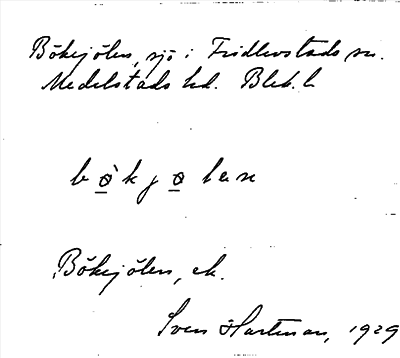 Bökejölen, sjö i Fridlevstads sn.
Medelstads hd. Blek. l.
bø̀kjølen
Bökejölen, ek.
Sven Hartman, 1929